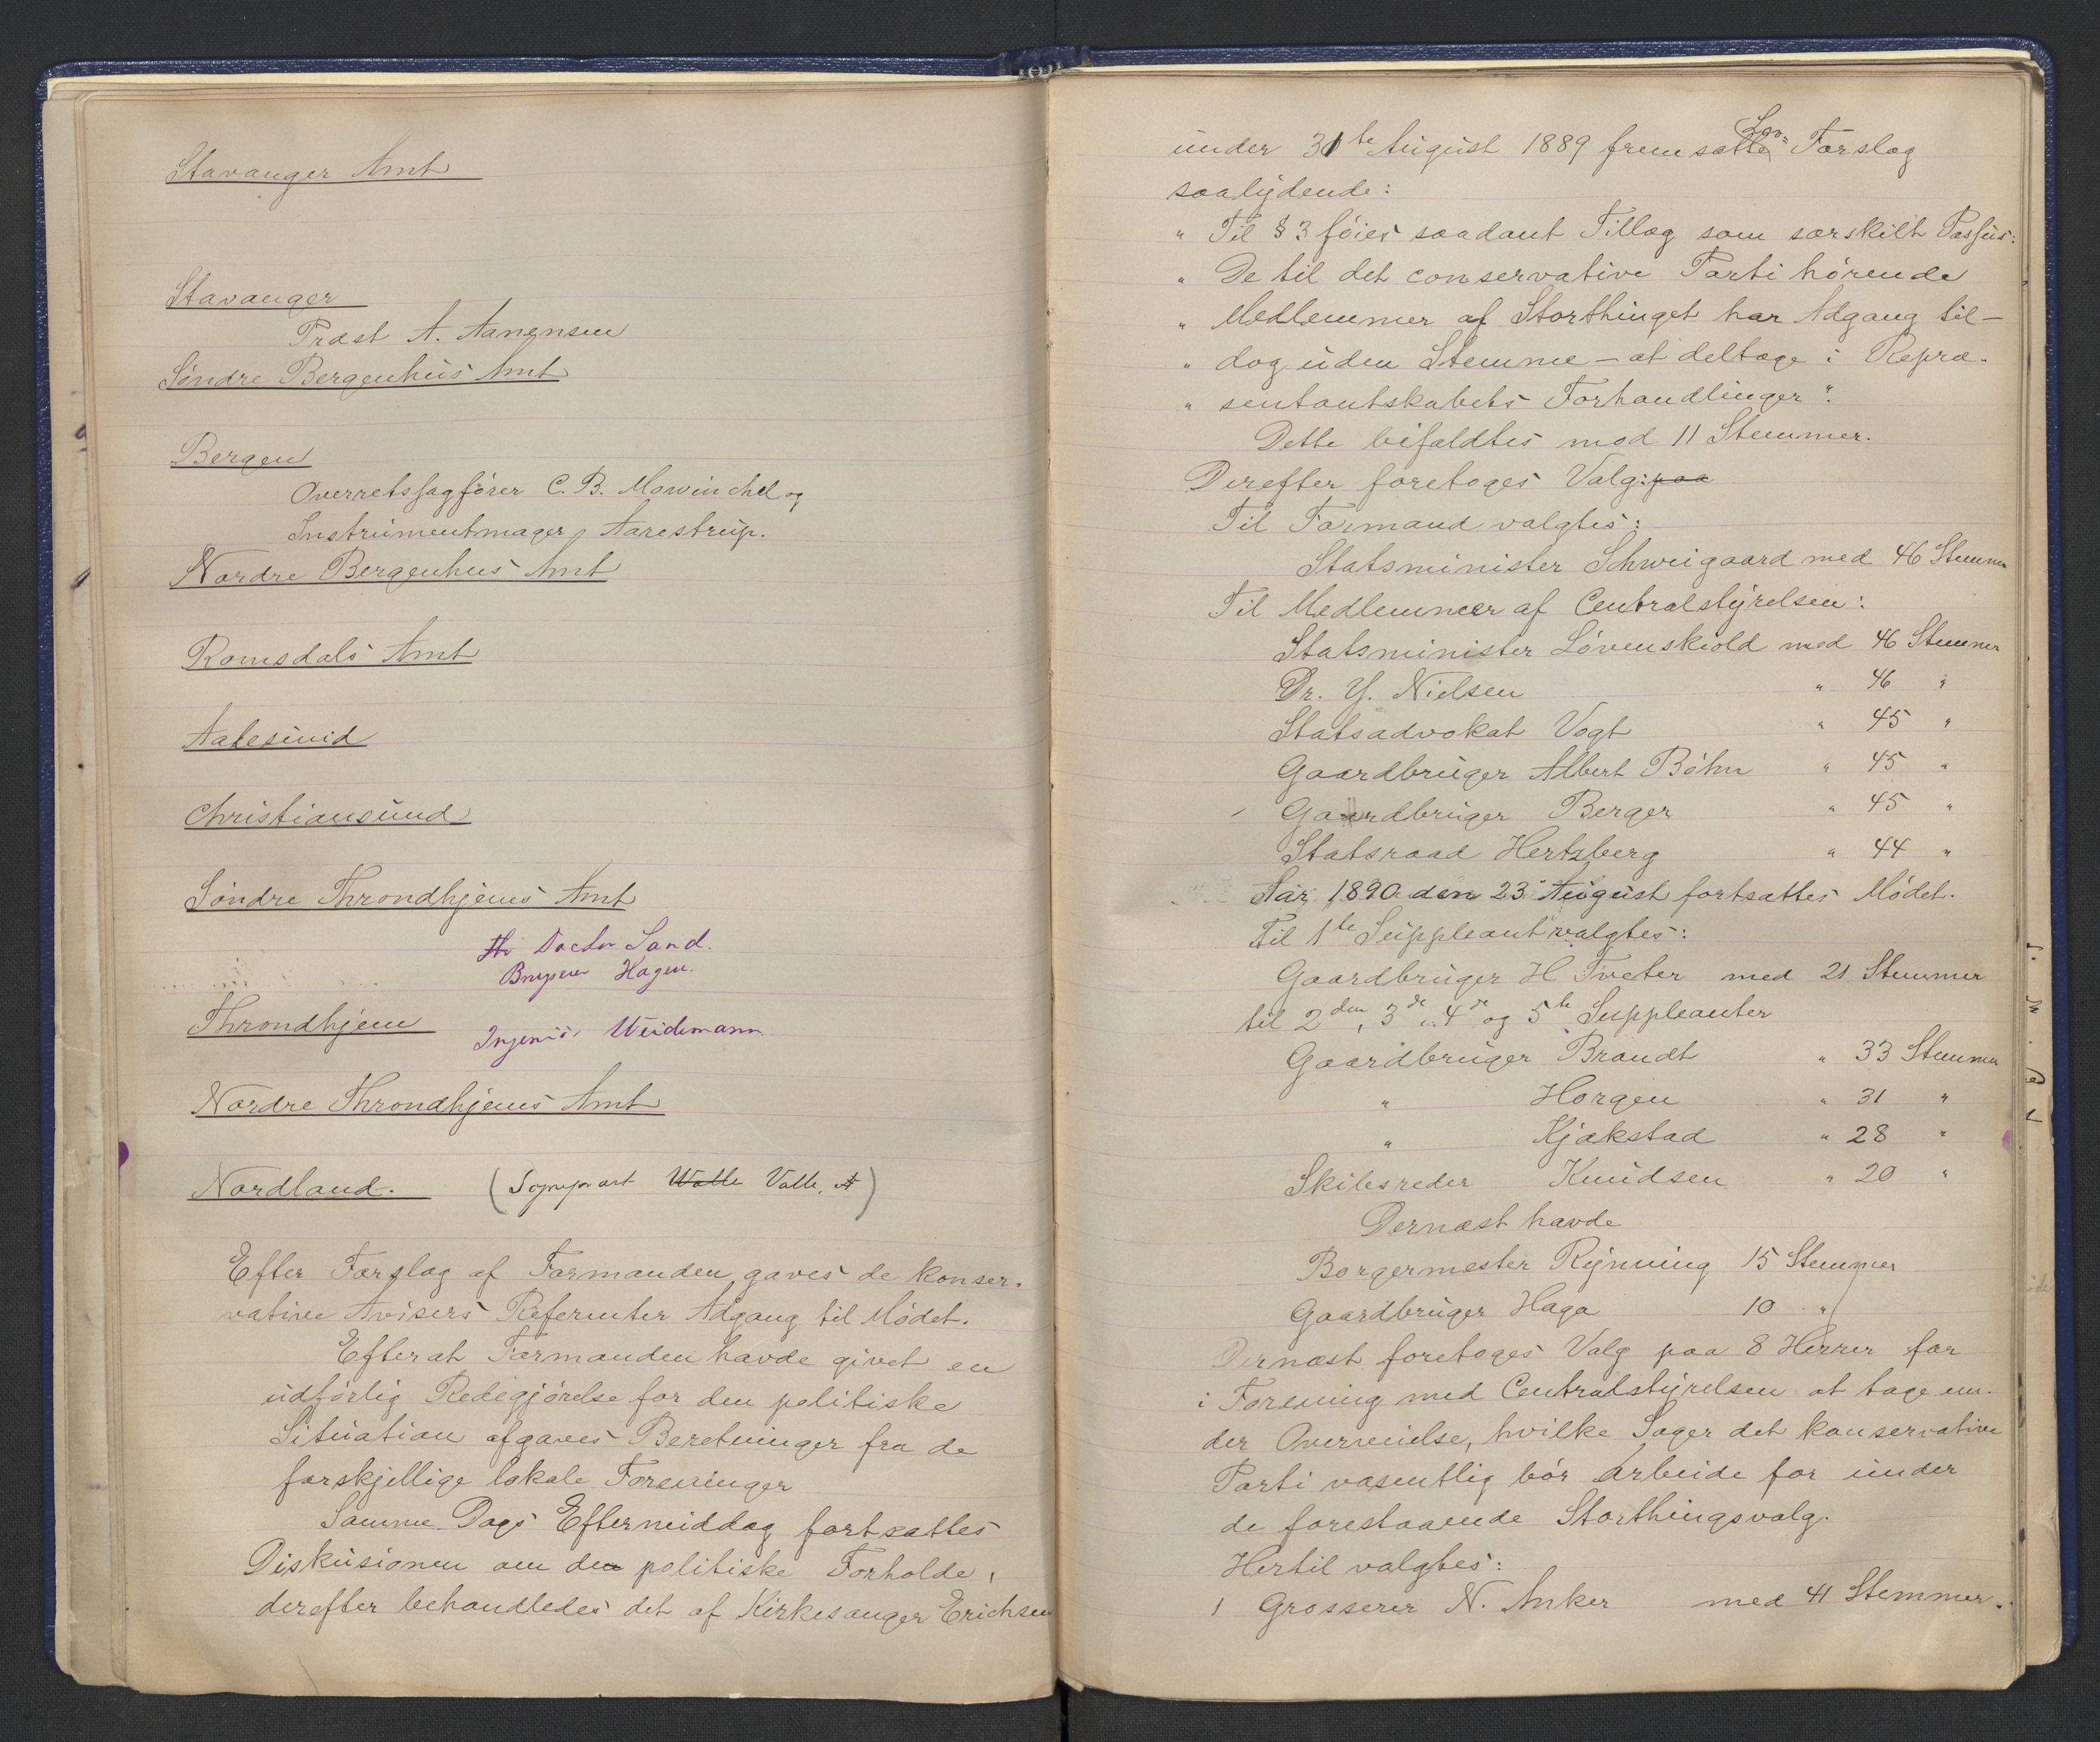 Stavanger Amt
Stavanger
Præst A. Aanensen
Søndre Bergenhus Amt
Bergen
Overretssagfører C. B. Mowinckel og
Instrumentmager Aarestrup.
Nordre Bergenhus Amt
Romsdals Amt
Aalesund
Christiansund
Søndre Throndhjems Amt
Doctor Sand.
Hagen.
Throndhjem
Ingeniør Weidemann
Nordre Throndhjems Amt
Nordland. (Sogneprest Walle Valle,)
Efter Forslag af Formanden gaves de konser-
vative Avisers Referenter Adgang til Mødet.
Efterat Formanden havde givet en
udførlig Redegjørelse for den politiske
Situation afgaves Beretninger fra de
forskjellige lokale Foreninger
Samme Dags Eftermiddag fortsattes
Diskusionen om den politiske Forholde,
derefter behandledes det af Kirkesanger Erichsen
under 31te August 1889 fremsatte Lov-Forslag
saalydende:
" Til § 3 føies saadant Tillæg som særskilt Passus:
" De til det conservative Parti hørende
" Medlemmer af Storthinget har Adgang til -
" dog uden Stemme - at deltage i Repræ-
" sentantskabets Forhandlinger".
Dette bifaldtes mod 11 Stemmer.
Derefter foretoges Valg: paa
Til Formand valgtes:
Statsminister Schweigaard med 46 Stemmer
Til Medlemmer af Centralstyrelsen:
Statsminister Løvenskiold med 46 Stemmer
Dr. Y. Nielsen " 46 "
Statsadvokat Vogt " 45 "
Gaardbruger Albert Bøhn " 45 "
Gaardbruger Berger " 45 "
Statsraad Hertzberg " 44 "
Aar 1890 den 23 August fortsattes Mødet.
Til 1te Suppleant valgtes:
Gaardbruger H Tveter med 21 Stemmer
til 2den, 3de, 4de og 5te Suppleanter
Gaardbruger Brandt " 33 Stemmer
" Horgen " 31 "
" Kjækstad " 28 "
Skibsreder Knudsen " 20 "
Dernæst havde
Borgermester Rynning 15 Stemmer
Gaardbruger Haga 10 "
Dernæst foretoges Valg paa 8 Herrer for
i Forening med Centralstyrelsen at tage un-
der Overveielse, hvilke Sager det konservative
Parti væsentlig bør arbeide for under
de forestaaende Storthingsvalg.
Hertil valgtes:
1 Grosserer N. Anker med 41 Stemmer.